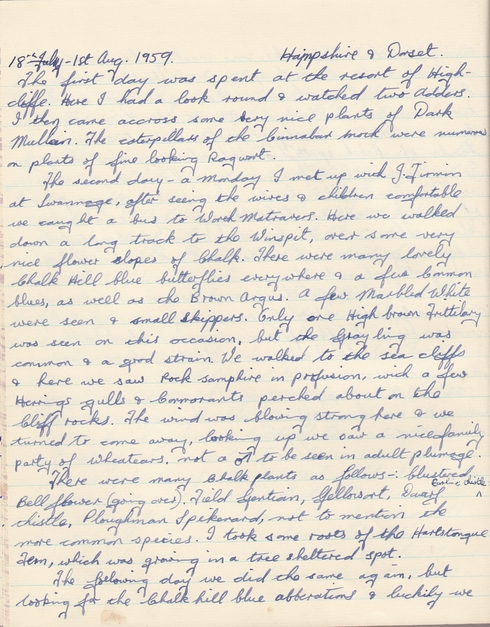 18th July - 1st Aug. 1959. Hampshire & Dorset.
The first day was spent at the resort of High-
cliffe. Here I had a look round & watched two adders.
I then came accross some very nice plants of Dark
Mullein. The caterpillars of the Cinnabar moth were numerous
on plants of fine looking Ragwort.
The second day - a Monday I met up with J. Firmin
at Swannage, after seeing the wives & children comfortable
we caught a bus to Worth Matravers. Here we walked
down a long track to the Winspit, over some very
nice flower slopes of Chalk. There were many lovely
Chalk Hill blue butterflies everywhere & a few Common
blues, as well as the Brown Argus. A few Marbled White
were seen & small skippers. Only one High brown Frittilary
was seen on this occasion, but the Grayling was
common & a good strain. We walked to the sea cliffs
& here we saw Rock samphire in profusion, with a few
Herings gulls & Cormorants perched about on the
Cliff rocks. The wind was blowing strong here & we
turned to come away, looking up we saw a nice family
party of wheatears. not a ♂ to be seen in adult plumage.
There were many Chalk plants as follows:- blustered
Bell flower (going over). Field Gentian, Yellowort, Dwarf
thistle, Ploughman Spikenard, not to mention the
more common species. I took some roots of the Hartstongue
Fern, which was growing in a tree sheltered spot.
The following day we did the same again, but
looking for the Chalk hill blue abberations & luckily we